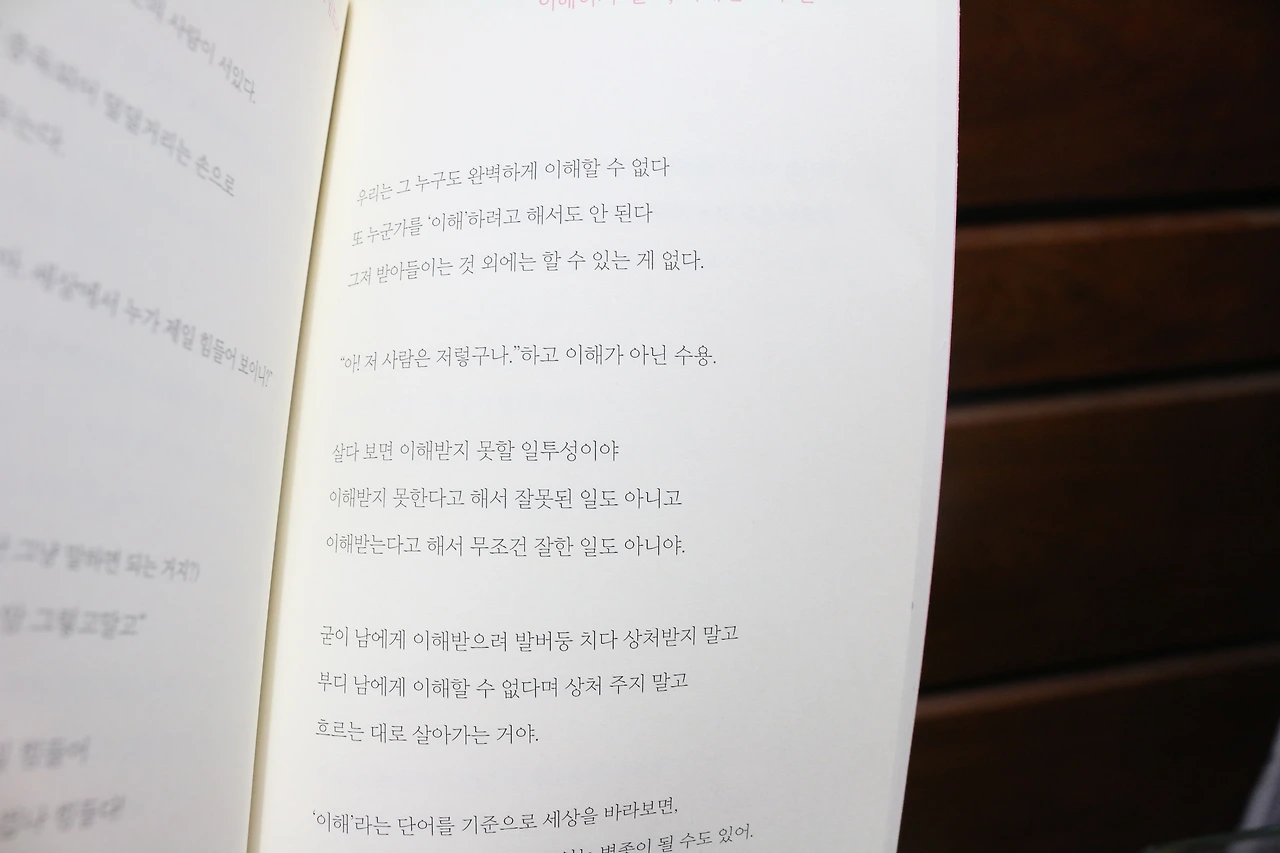 사람이 서있다.
덜덜거리는 손으로
세상에서 누가 제일 힘들어 보이니?"
그냥 말하면 되는 거지?)
그렇고말고"
힘들어
힘들다
우리는 그 누구도 완벽하게 이해할 수 없다
또 누군가를 ‘이해’하려고 해서도 안 된다
그저 받아들이는 것 외에는 할 수 있는 게 없다.
“아! 저 사람은 저렇구나.”하고 이해가 아닌 수용.
살다 보면 이해받지 못할 일투성이야
이해받지 못한다고 해서 잘못된 일도 아니고
이해받는다고 해서 무조건 잘한 일도 아니야.
굳이 남에게 이해받으려 발버둥 치다 상처받지 말고
부디 남에게 이해할 수 없다며 상처 주지 말고
흐르는 대로 살아가는 거야.
‘이해’라는 단어를 기준으로 세상을 바라보면,
변종이 될 수도 있어.